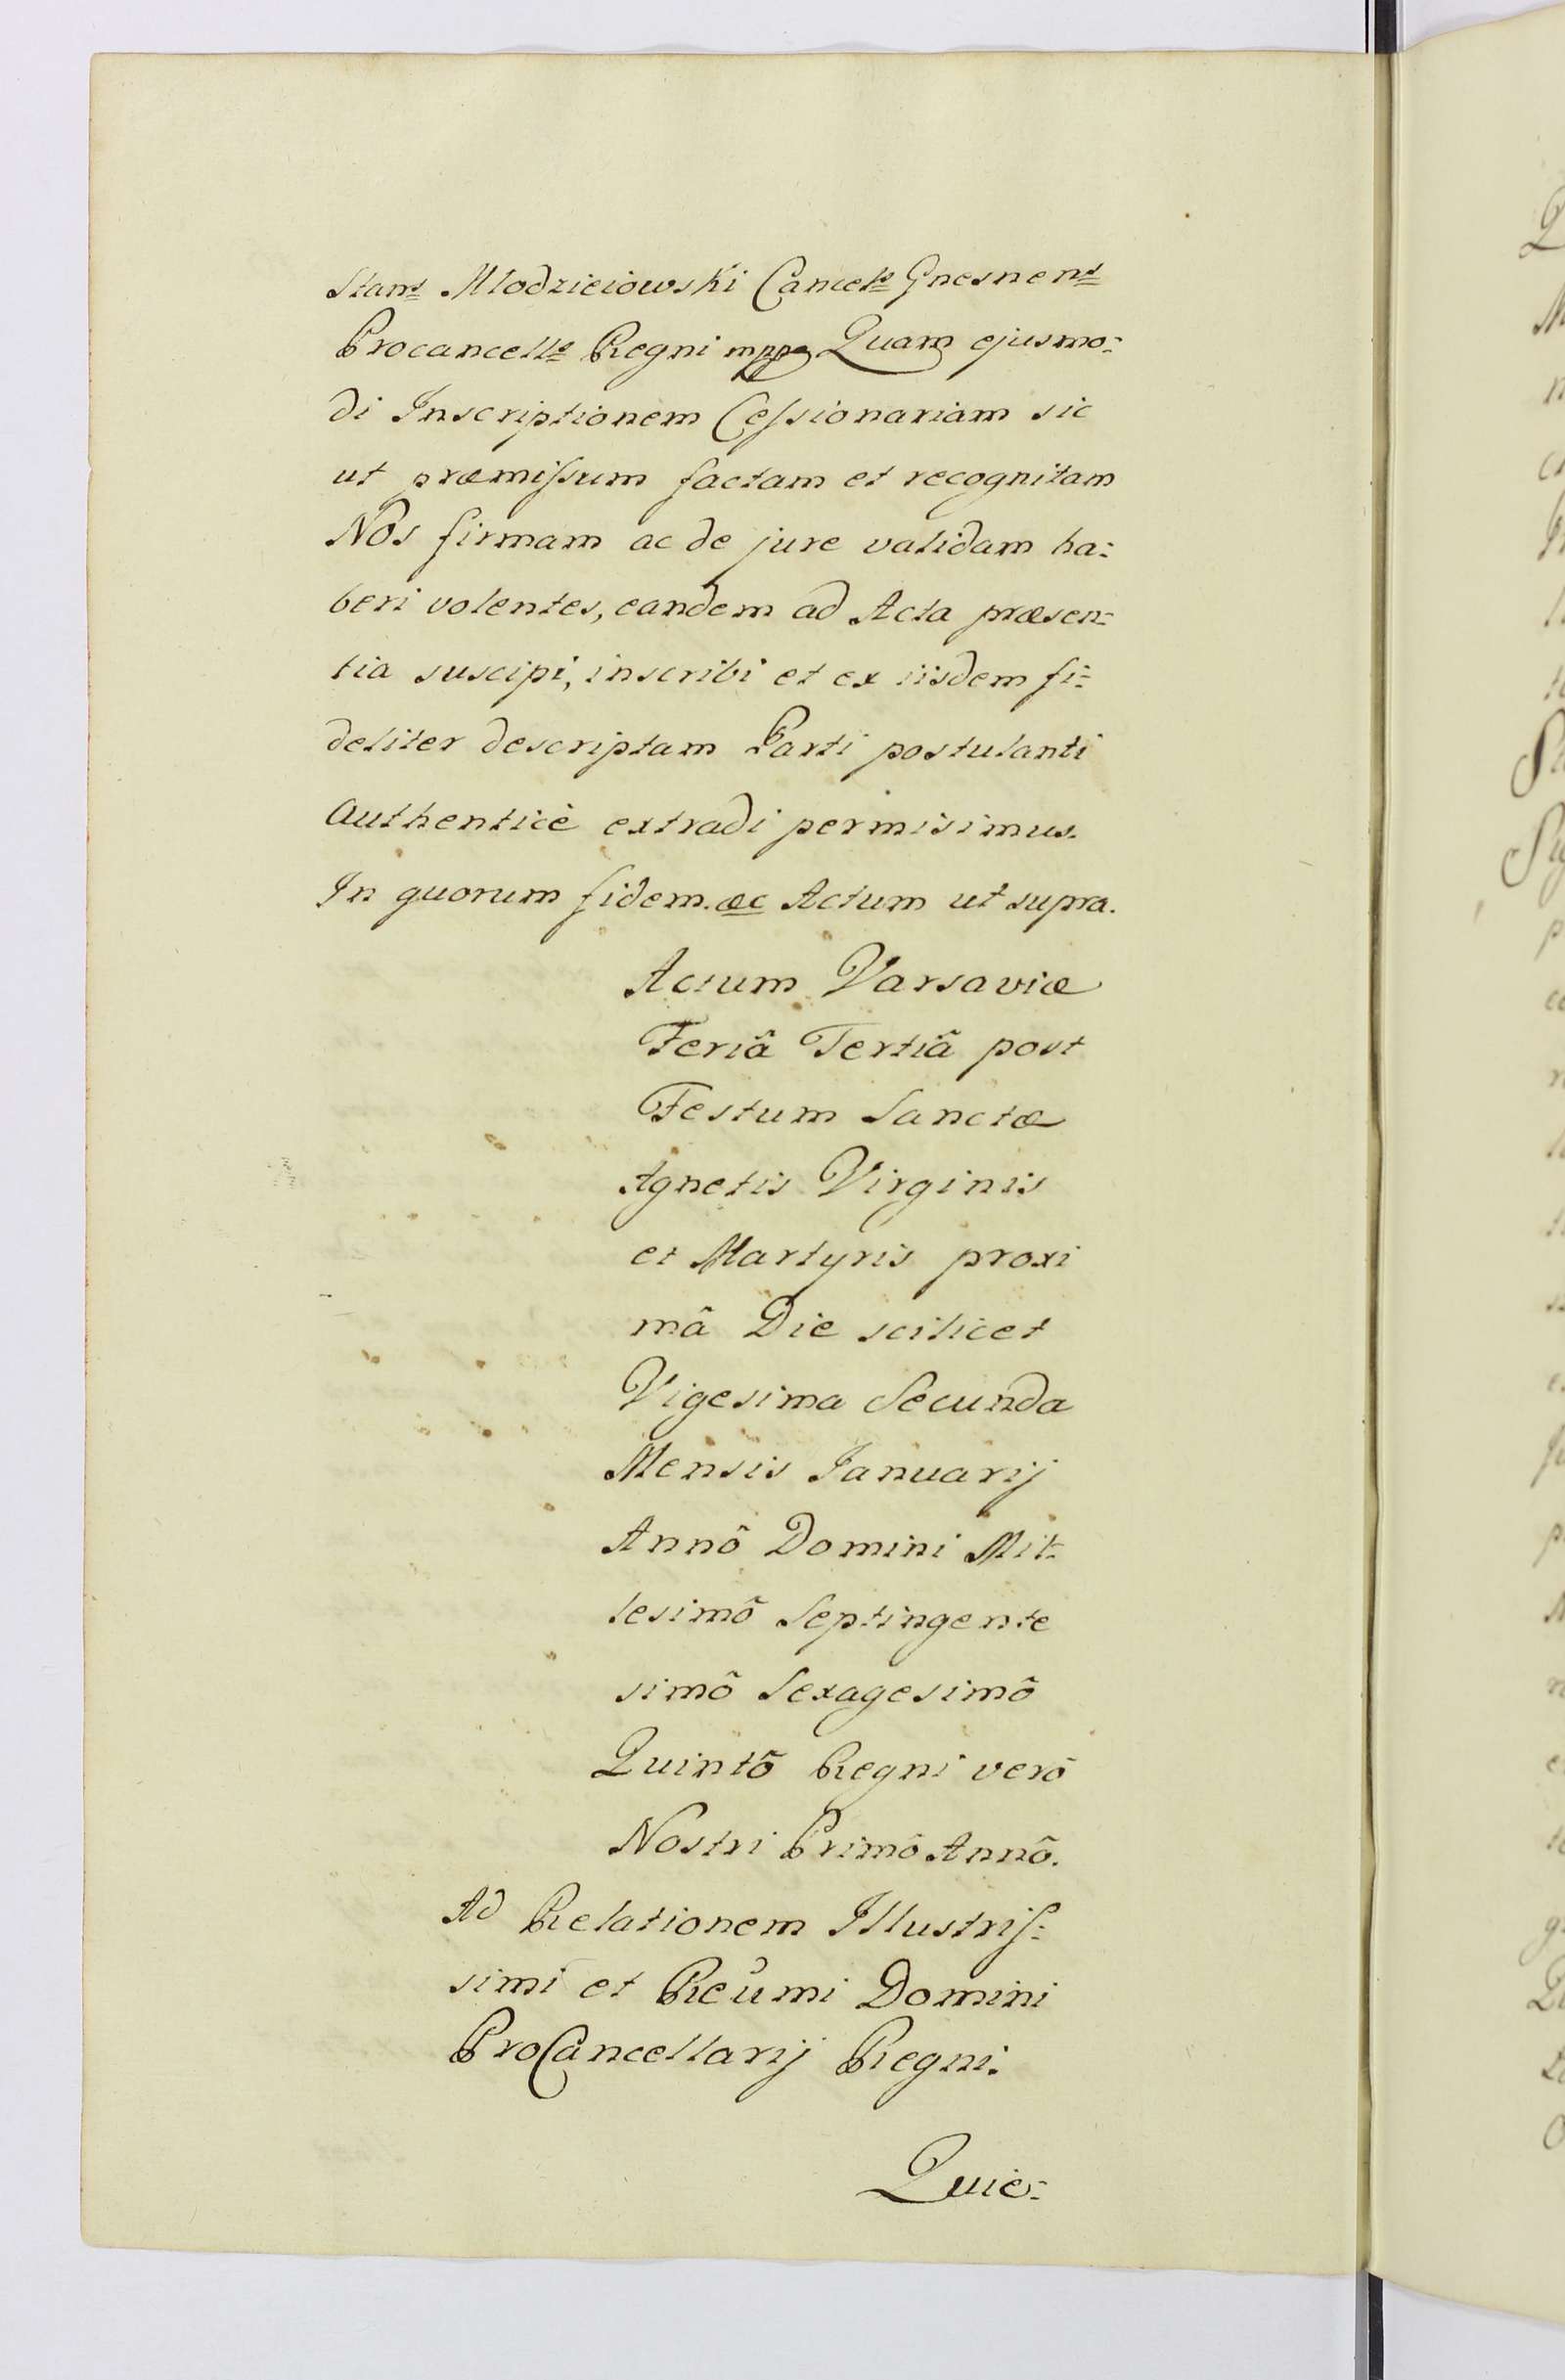 Stans Mlodzieiowski Cancels Gnesnens
Procancells Regni mppa Quam ejusmo:
di Inscriptionem Ceſsionariam sic
ut præmiſsum factam et recognitam
Nos firmam ac de jure validam ha:
beri volentes, eandem ad Acta præsen:
tia suscipi, inscribi et ex iisdem fi:
deliter descriptam Parti postulanti
authenticè extradi permisimus.
In quorum fidem. æc Actum ut supra.
Actum Varsaviæ
Feriâ Tertiâ post
Festum Sanctæ
Agnetis Virginis
et Martyris proxi
mâ Die scilicet
Vigesima Secunda
Mensis Januarij
Annô Domini Mil:
lesimô Septingente
simô Sexagesimô
Quintô Regni verô
Nostri Primô Annô.
Ad Relationem Illustriſ:
simi et Reumi Domini
ProCancellarij Regni.
Quie: